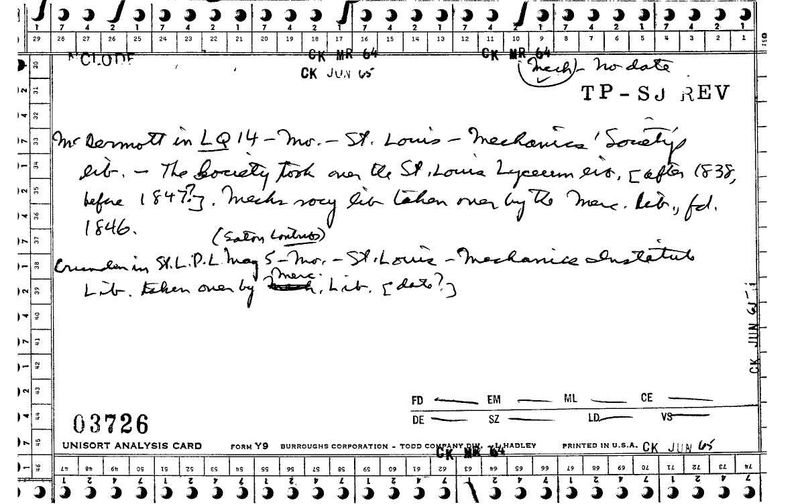 CK MR 64 CK MR 64
CK JUN 65
(Mech) - No date
TP-SJ REV
McDermott in LQ 14 - Mo. - St. Louis - Mechanics' Society's
lib. - The Society took over the St. Louis Lyceum lib. [after 1838,
before 1847?]. Mechs socy lib taken over by the Merc. Lib., fd.
1846.
Crunden in St.L.P.L. Mag 5 - Mo. - St. Louis - Mechanics Institute
Merc.
Lib. taken over by Mech. Lib. [date?]
CK JUN 65
FD EM ML CE
DE SZ LD VS
03726
UNISORT ANALYSIS CARD FORM Y9 BURROUGHS CORPORATION - TODD COMPANY DIV. HADLEY PRINTED IN U.S.A. CK JUN 65
CK MR 64